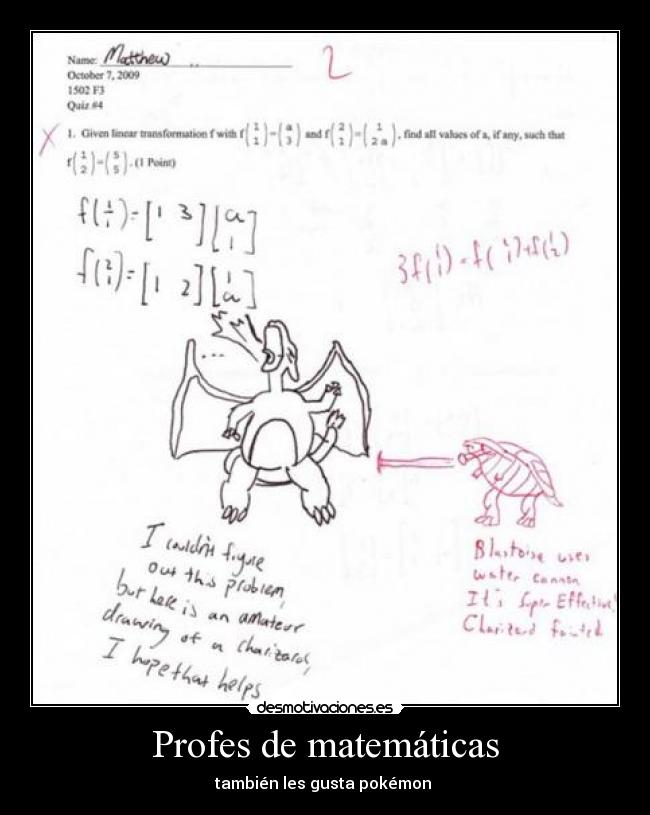 Name: Matthew
2
October 7, 2009
1502 F3
Quiz #4
X 1. Given linear transformation f with f(1 1)=(a 3) and f(2 1)=(1 2a), find all values of a, if any, such that
f(1 2)=(5 5). (1 Point)
f(1 1)=[1 3][a 1]
f(2 1)=[1 2][1 a]
3f(1 1)=f( )+f(1 2)
...
I couldn't figure
out this problem,
but here is an amateur
drawing of a charizard,
I hope that helps
Blastoise uses
water cannon
It's Super Effective!
Charizard fainted
desmotivaciones.es
Profes de matemáticas
también les gusta pokémon